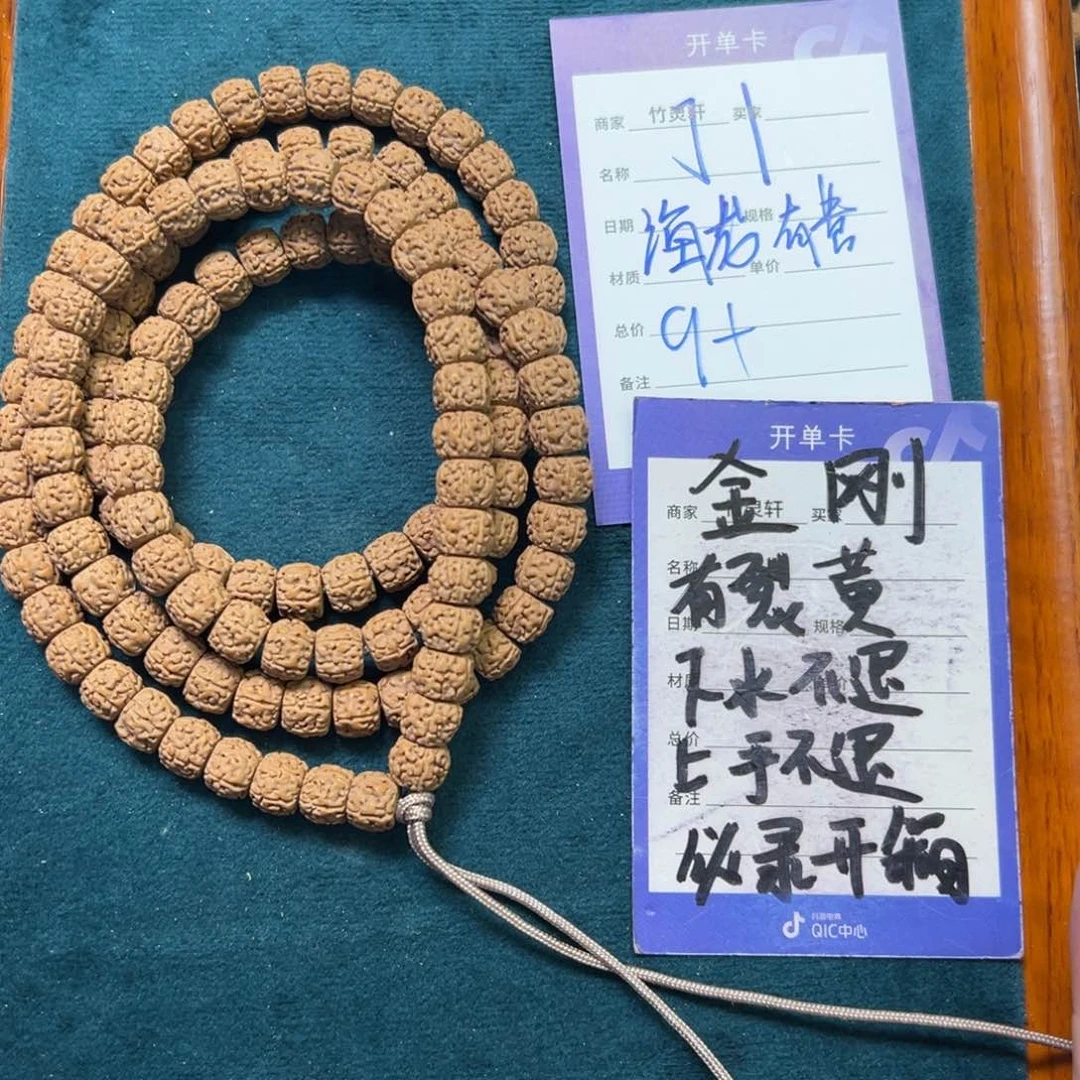 开单卡
商家 竹灵轩 买家
J1
名称
日期 规格
材质 单价
总价
9+
备注
开单卡
金刚
商家 竹灵轩 买家
名称
有裂黄
日期 规格
下水不退
材质
总价
上手不退
备注
必录开箱
抖音电商
QIC中心